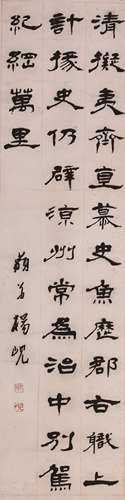 清擬夷齊直慕史魚歷郡右職上
計掾史仍辟涼州常為治中別駕
紀綱萬里
藐翁楊峴